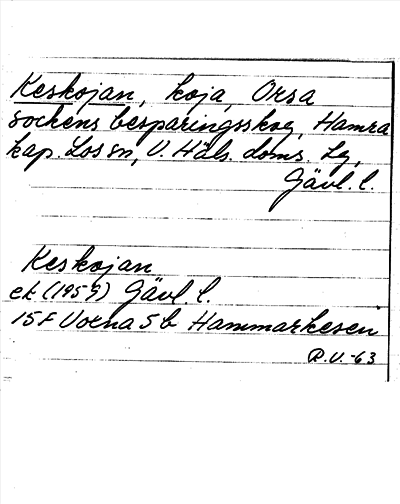 Keskojan, koja, Orsa
sockens besparingsskog, Hamra
kap. Los sn, V. Häls. doms. Lg,
Gävl. l.
Keskojan
ek (1959) Gävl. l.
15F Voxna 5b Hammarkesen
R.V.-63